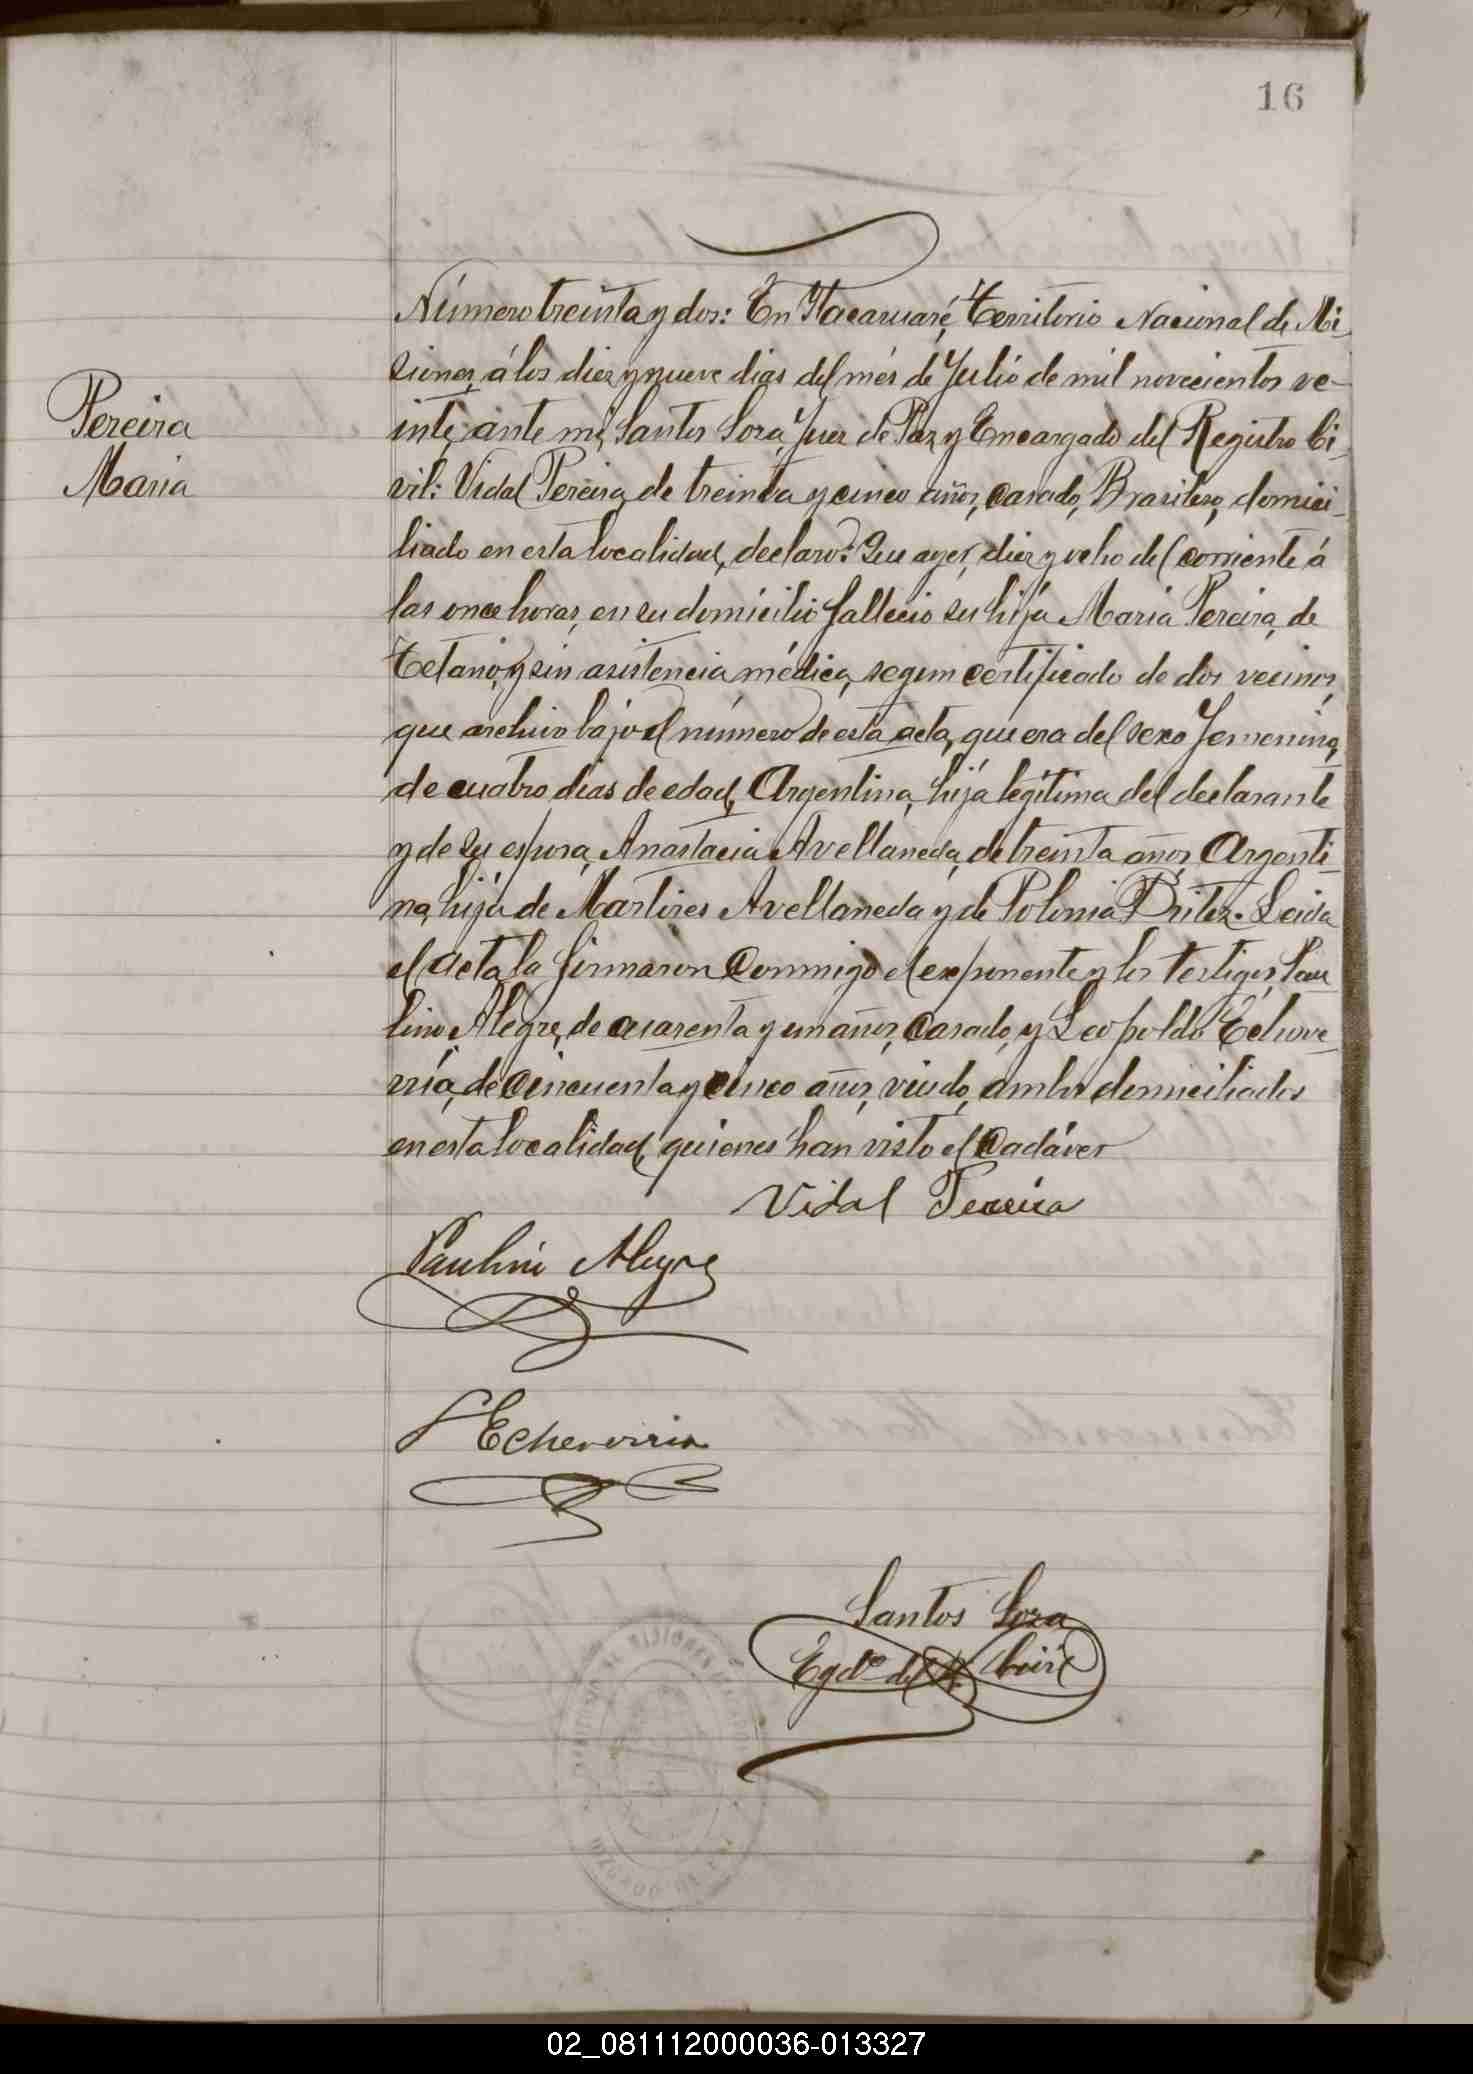 16
Pereira
Maria
Número treinta y dos: En Itacaruaré, Territorio Nacional de Mi-
siones, á los diez y nueve dias del més de Julio de mil novecientos ve-
inte, ante mi, Santos Soza, Juez de Paz y Encargado del Registro Ci-
vil: Vidal Pereira, de treinta y cinco años, casado, Brasilero, domici-
liado en esta localidad, declaró: Que ayer, diez y ocho del corriente á
las once horas, en su domicilio falleció su hija Maria Pereira, de
Tetano, y sin asistencia médica, segun certificado de dos vecinos,
que archivo bajo el número de esta acta, que era del sexo femenino,
de cuatro dias de edad, Argentina, hija legítima del declarante
y de su esposa, Anastacia Avellaneda, de treinta años, Argenti-
na, hija de Martires Avellaneda y de Polonia Britez. Leida
el acta la firmaron conmigo el exponente y los testigos, Pau
lino Alegre, de cuarenta y un años, casado, y Leopoldo Echeve-
rria, de cincuenta y cinco años, viudo, ambos domiciliados
en esta localidad, quienes han visto el cadáver
Vidal Pereira
Paulino Alegre
L Echeverria
Santos Soza
Egdo del R. Civil
02_081112000036-013327